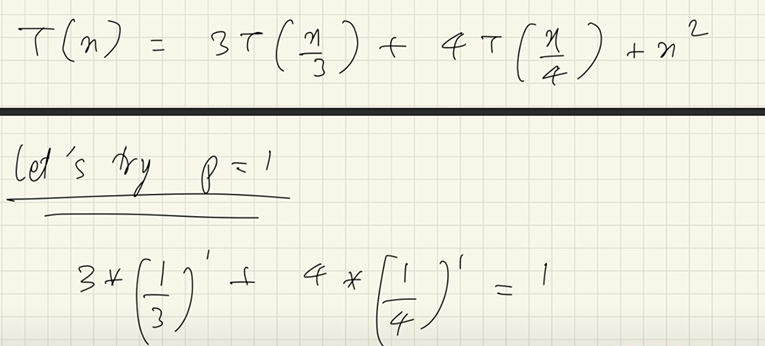 T(n) = 3T(n/3) + 4T(n/4) + n²
Let's try p = 1
3*(1/3)¹ + 4*(1/4)¹ = 1